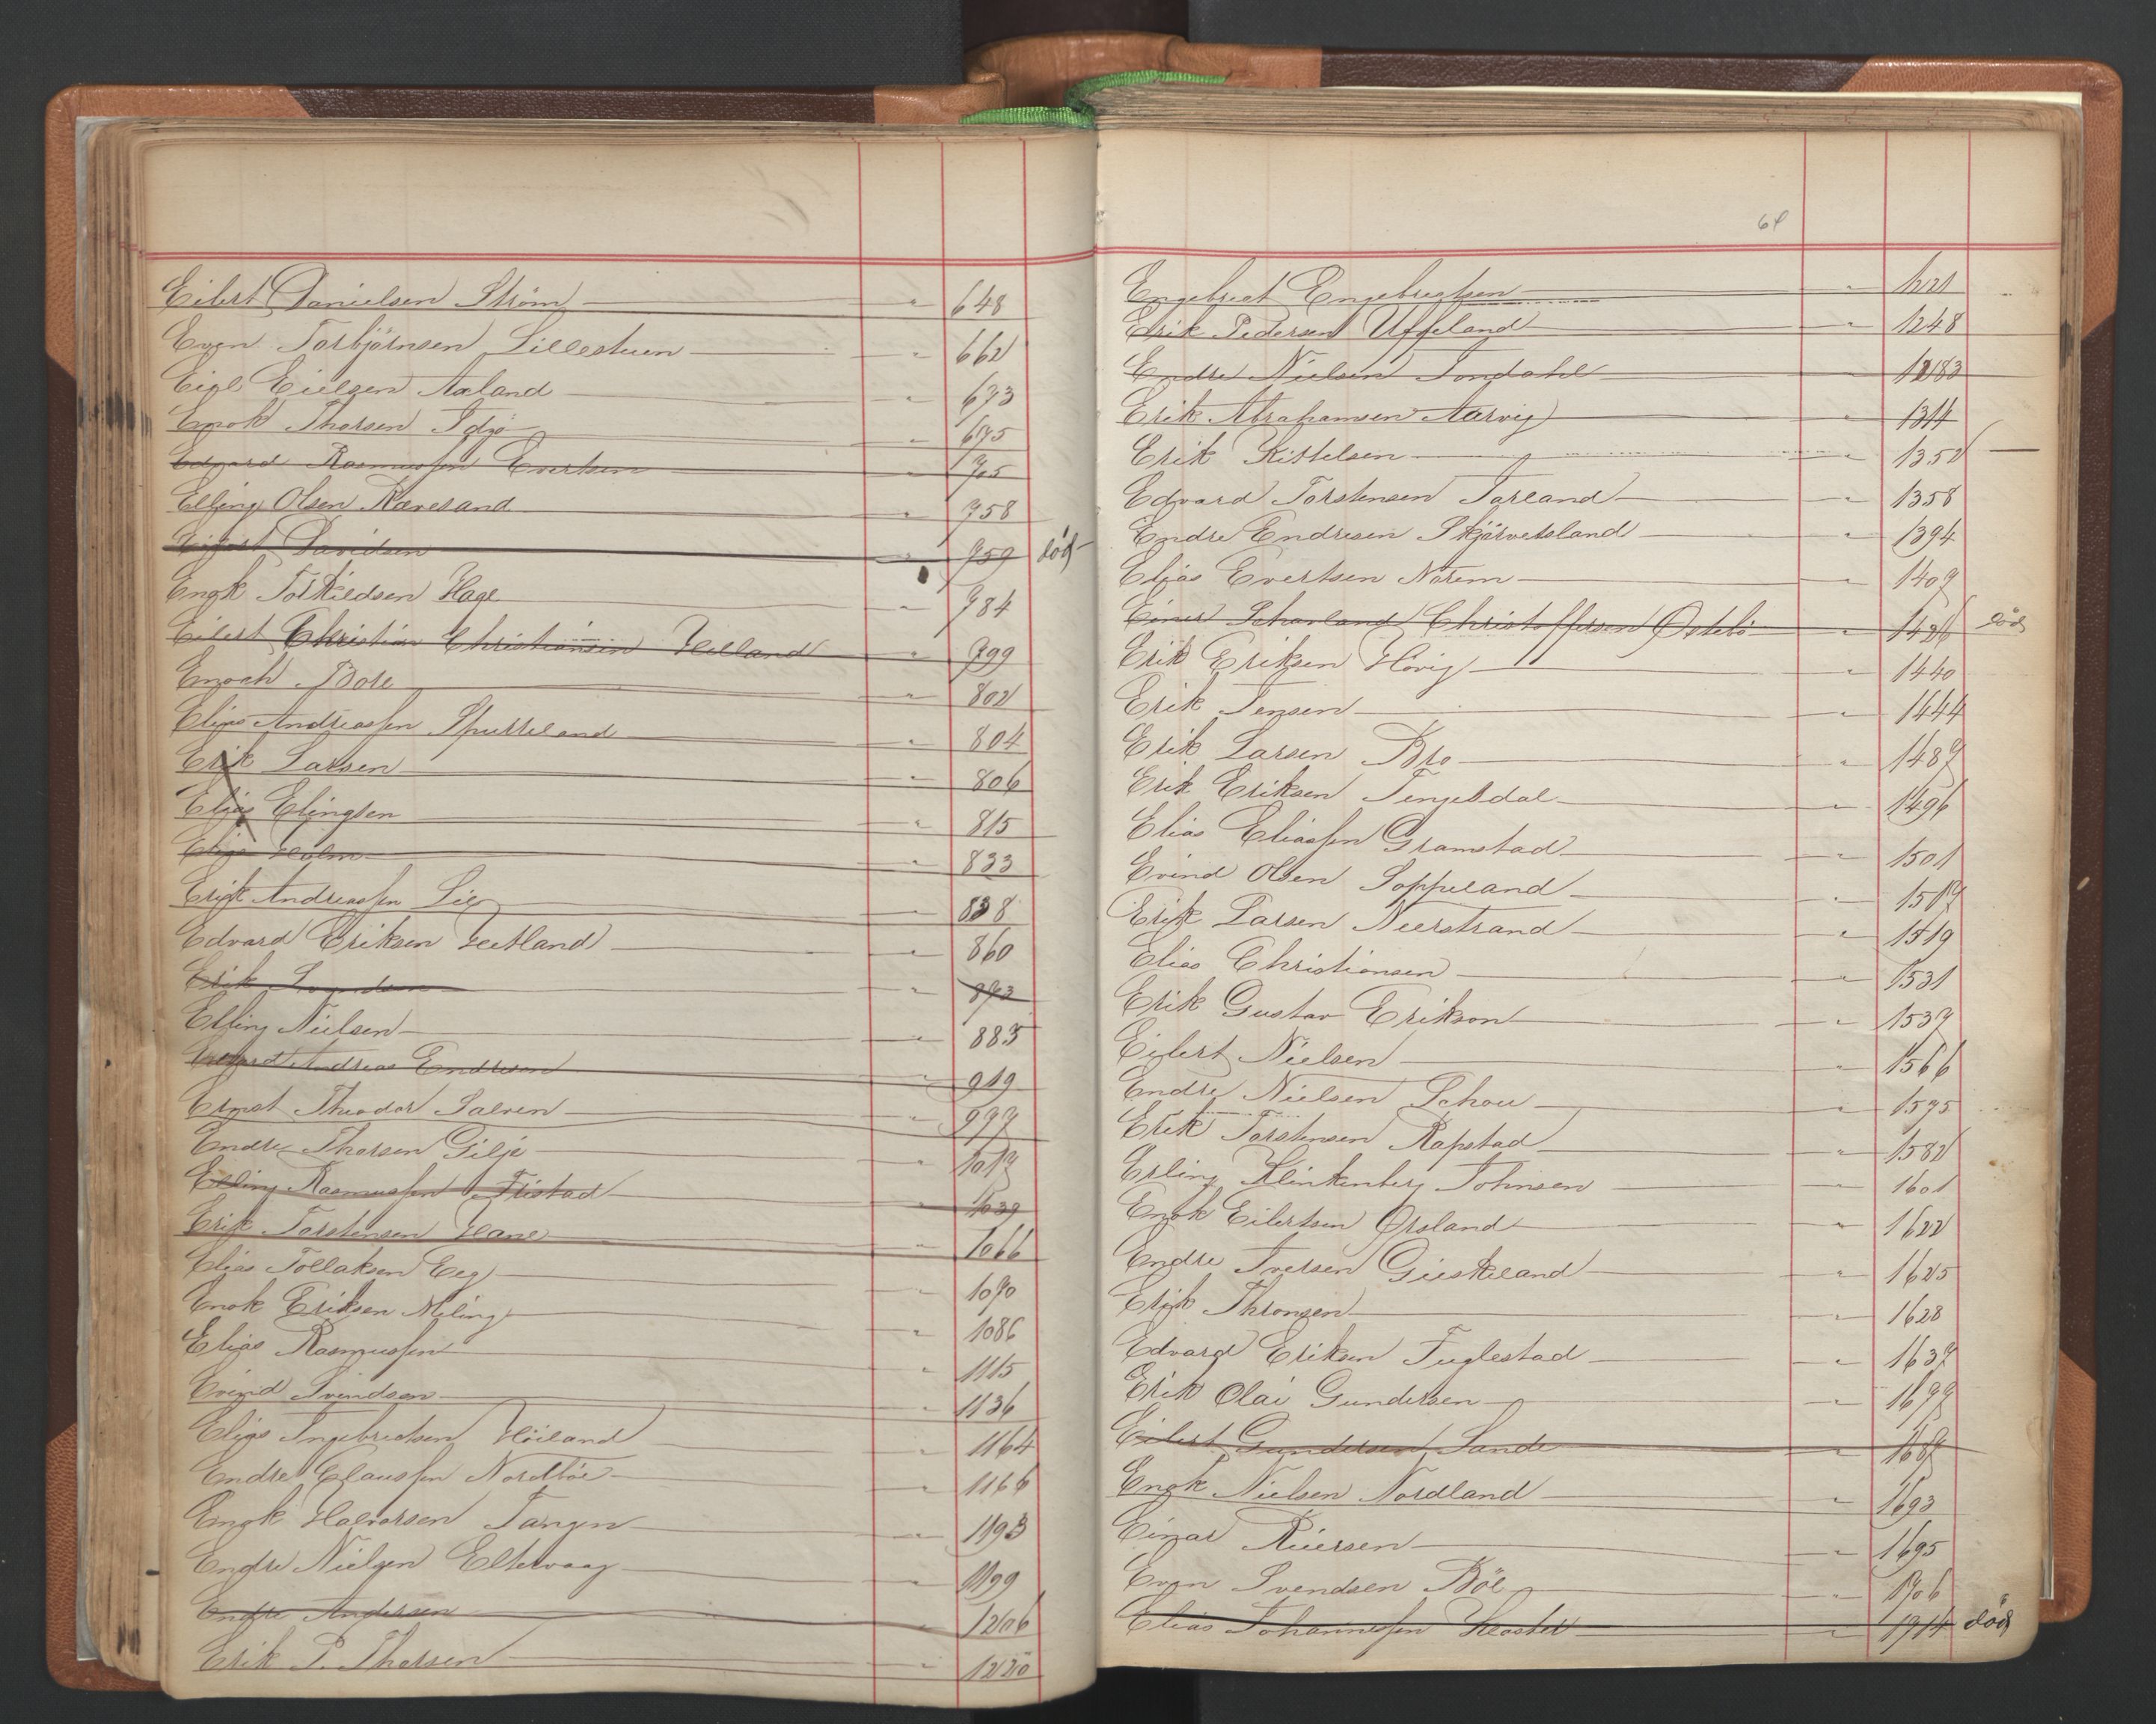 Eilert Danielsen Strøm " 648
Even Torbjörnsen Lillestuen " 662
Eiel Eielsen Aaland " 673
Enok Thorsen Idsö " 675
Edvard Rasmussen Evertsen " 705
Elling Olsen Rævesand " 758
Davidsen " 759 död
Enok Torkildsen Hage " 784
Eilert Christian Christiansen Helland " 799
Enoch Bore " 802
Elias Andreassen Spurkeland " 804
Erik Larsen " 806
Elias Elingsen " 815
Elias Holm " 833
Erik Andreassen Lie " 838
Edvard Eriksen Hetland " 860
Erik Svendsen " 873
Elling Nielsen " 883
Edvard Andreas Endresen " 919
Ernst Theodor Salven " 997
Endre Thorsen Gilje " 1017
Elling Rasmussen Fristad " 1039
Erik Torstensen Hane " 1066
Elias Tollaksen Eeg " 1070
Enok Eriksen Meling " 1086
Elias Rasmussen " 1115
Evind Svendsen " 1136
Elias Ingebretsen Höiland " 1164
Endre Claussen Nordböe " 1166
Enok Halvorsen Tangen " 1193
Endre Nielsen Eltervaag " 1199
Endre Andersen " 1206
Erik P. Thorsen " 1220
64
Engebret Engebretsen " 1221
Erik Pedersen Uffeland " 1248
Endre Nielsen Tondahl " 1283
Erik Abrahamsen Aarvig " 1314
Erik Kittelsen " 1352 —
Edvard Torstensen Tarland " 1358
Endre Endresen Skjörvetsland " 1394
Elias Evertsen Norem " 1407
Einer Scharland Christoffersen Østebö " 1426 död
Erik Eriksen Hövig " 1440
Erik Jensen " 1444
Erik Larsen Bro " 1487
Erik Eriksen Tengesdal " 1496
Elias Eliassen Gramstad " 1501
Evind Olsen Soppeland " 1517
Erik Larsen Neerstrand " 1519
Elias Christiansen " 1531
Erik Gustav Erikson " 1537
Eilert Nielsen " 1566
Endre Nielsen Schou " 1575
Erik Torstensen Rapstad " 1582
Erling Klinkenberg Johnsen " 1601
Enok Eilertsen Ørsland " 1622
Endre Iversen Gieskeland " 1625
Erik Thronsen " 1628
Edvard Eriksen Fuglestad " 1637
Erik Olai Gundersen " 1677
Eilert Gundersen Sande " 1687
Enok Nielsen Nordland " 1693
Einar Riiersen " 1695
Even Svendsen Böe " 1706
Elias Johannessen Kloster " 1714 död